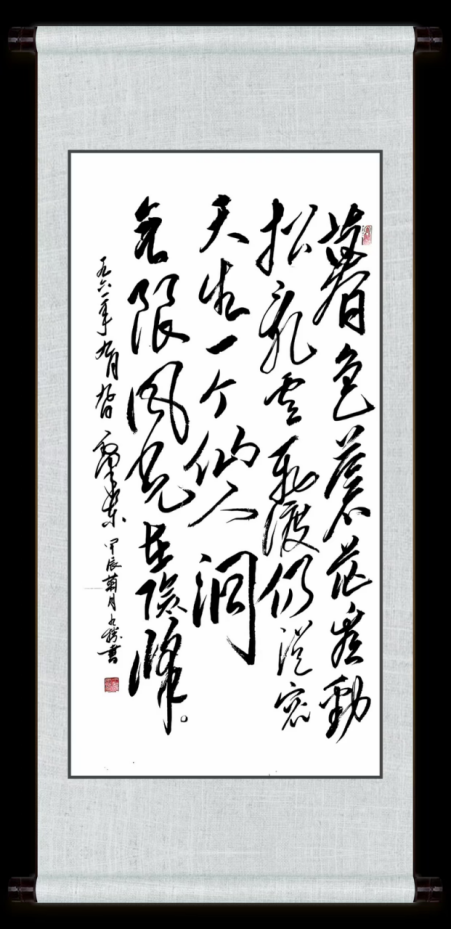 暮色蒼茫看勁
松乱雲飛渡仍從容
天生一个仙人洞
无限风光在險峰。
一九六一年九月九日 澤东 甲辰菊月 書